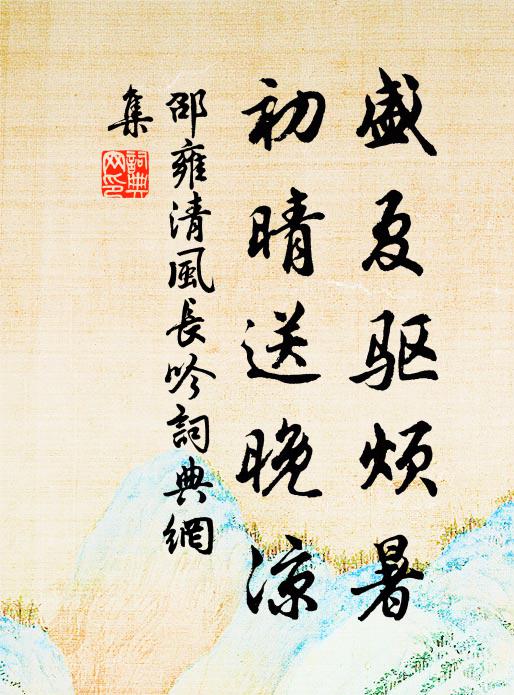 盛夏驱烦暑
初晴送晚凉
邵雍清風长吟詞典網
集
詞典
网印